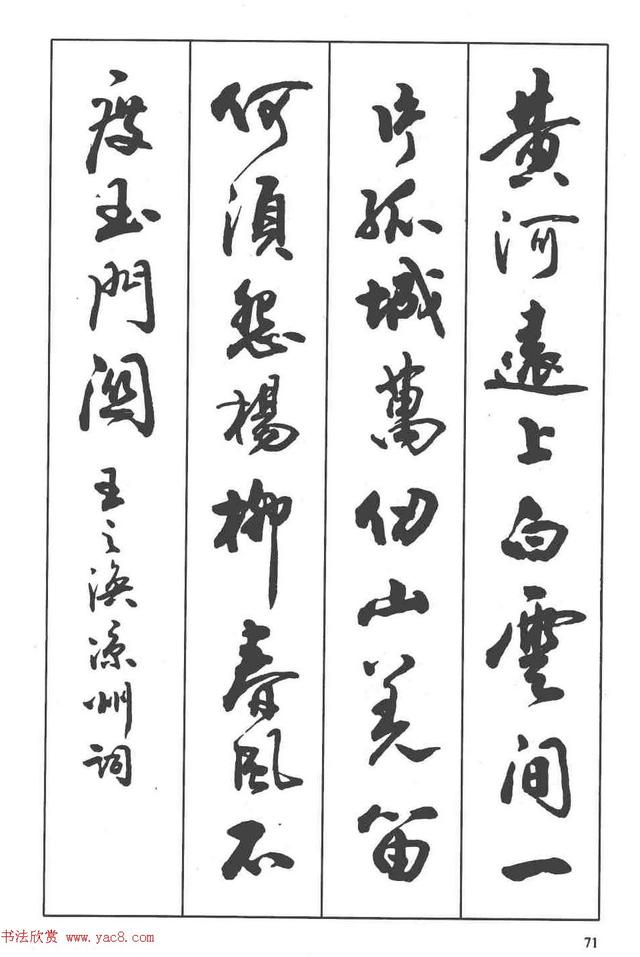 黄河遠上白雲间一
片孤城萬仞山羌笛
何須怨楊柳春風不
度玉門関
王之渙凉州詞
书法欣赏 www.yac8.com
71